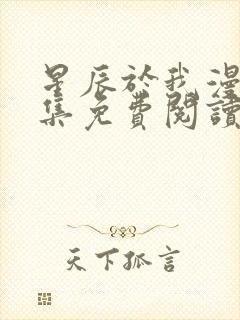 星辰於我漫
集免費閱讀
天下孤言